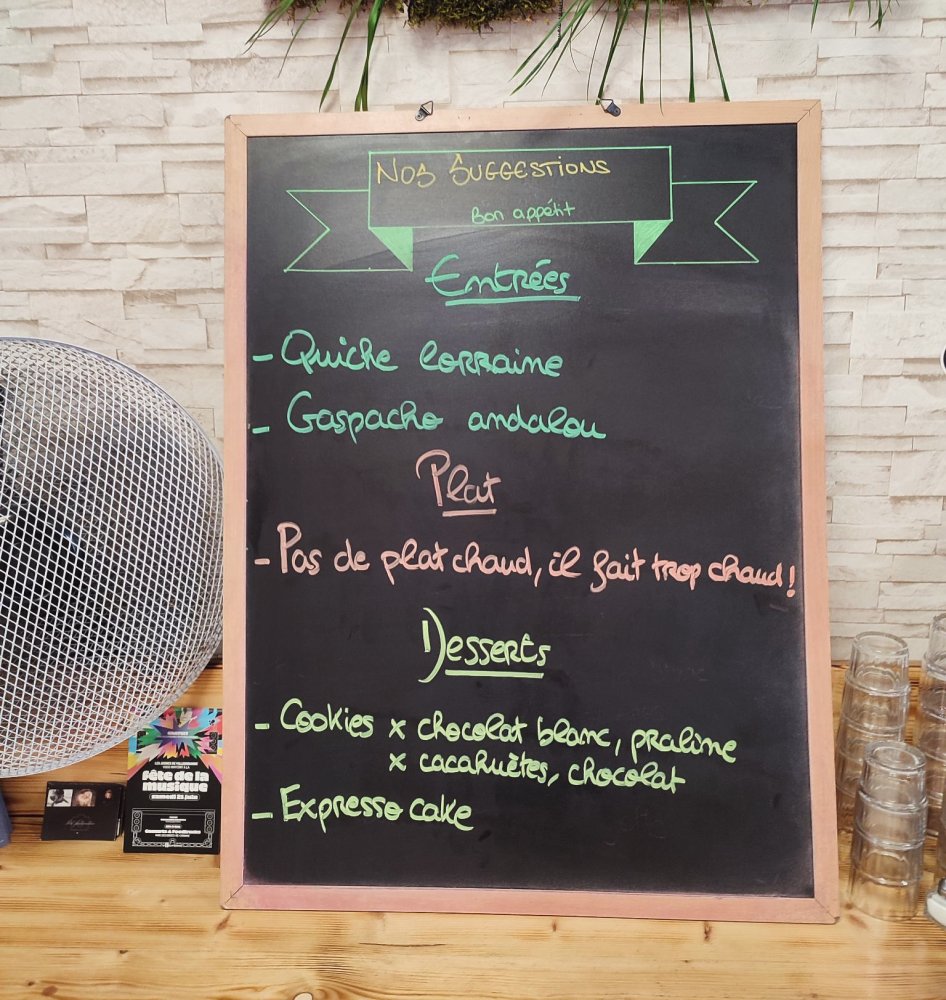 Nos Suggestions
Bon appétit
Entrées
- Quiche lorraine
- Gaspacho andalou
Plat
- Pas de plat chaud, il fait trop chaud!
Desserts
- Cookies x chocolat blanc, praline
x cacahuètes, chocolat
- Expresso cake
fête de la
musique
samedi 21 juin
Concerts & Foodtrucks